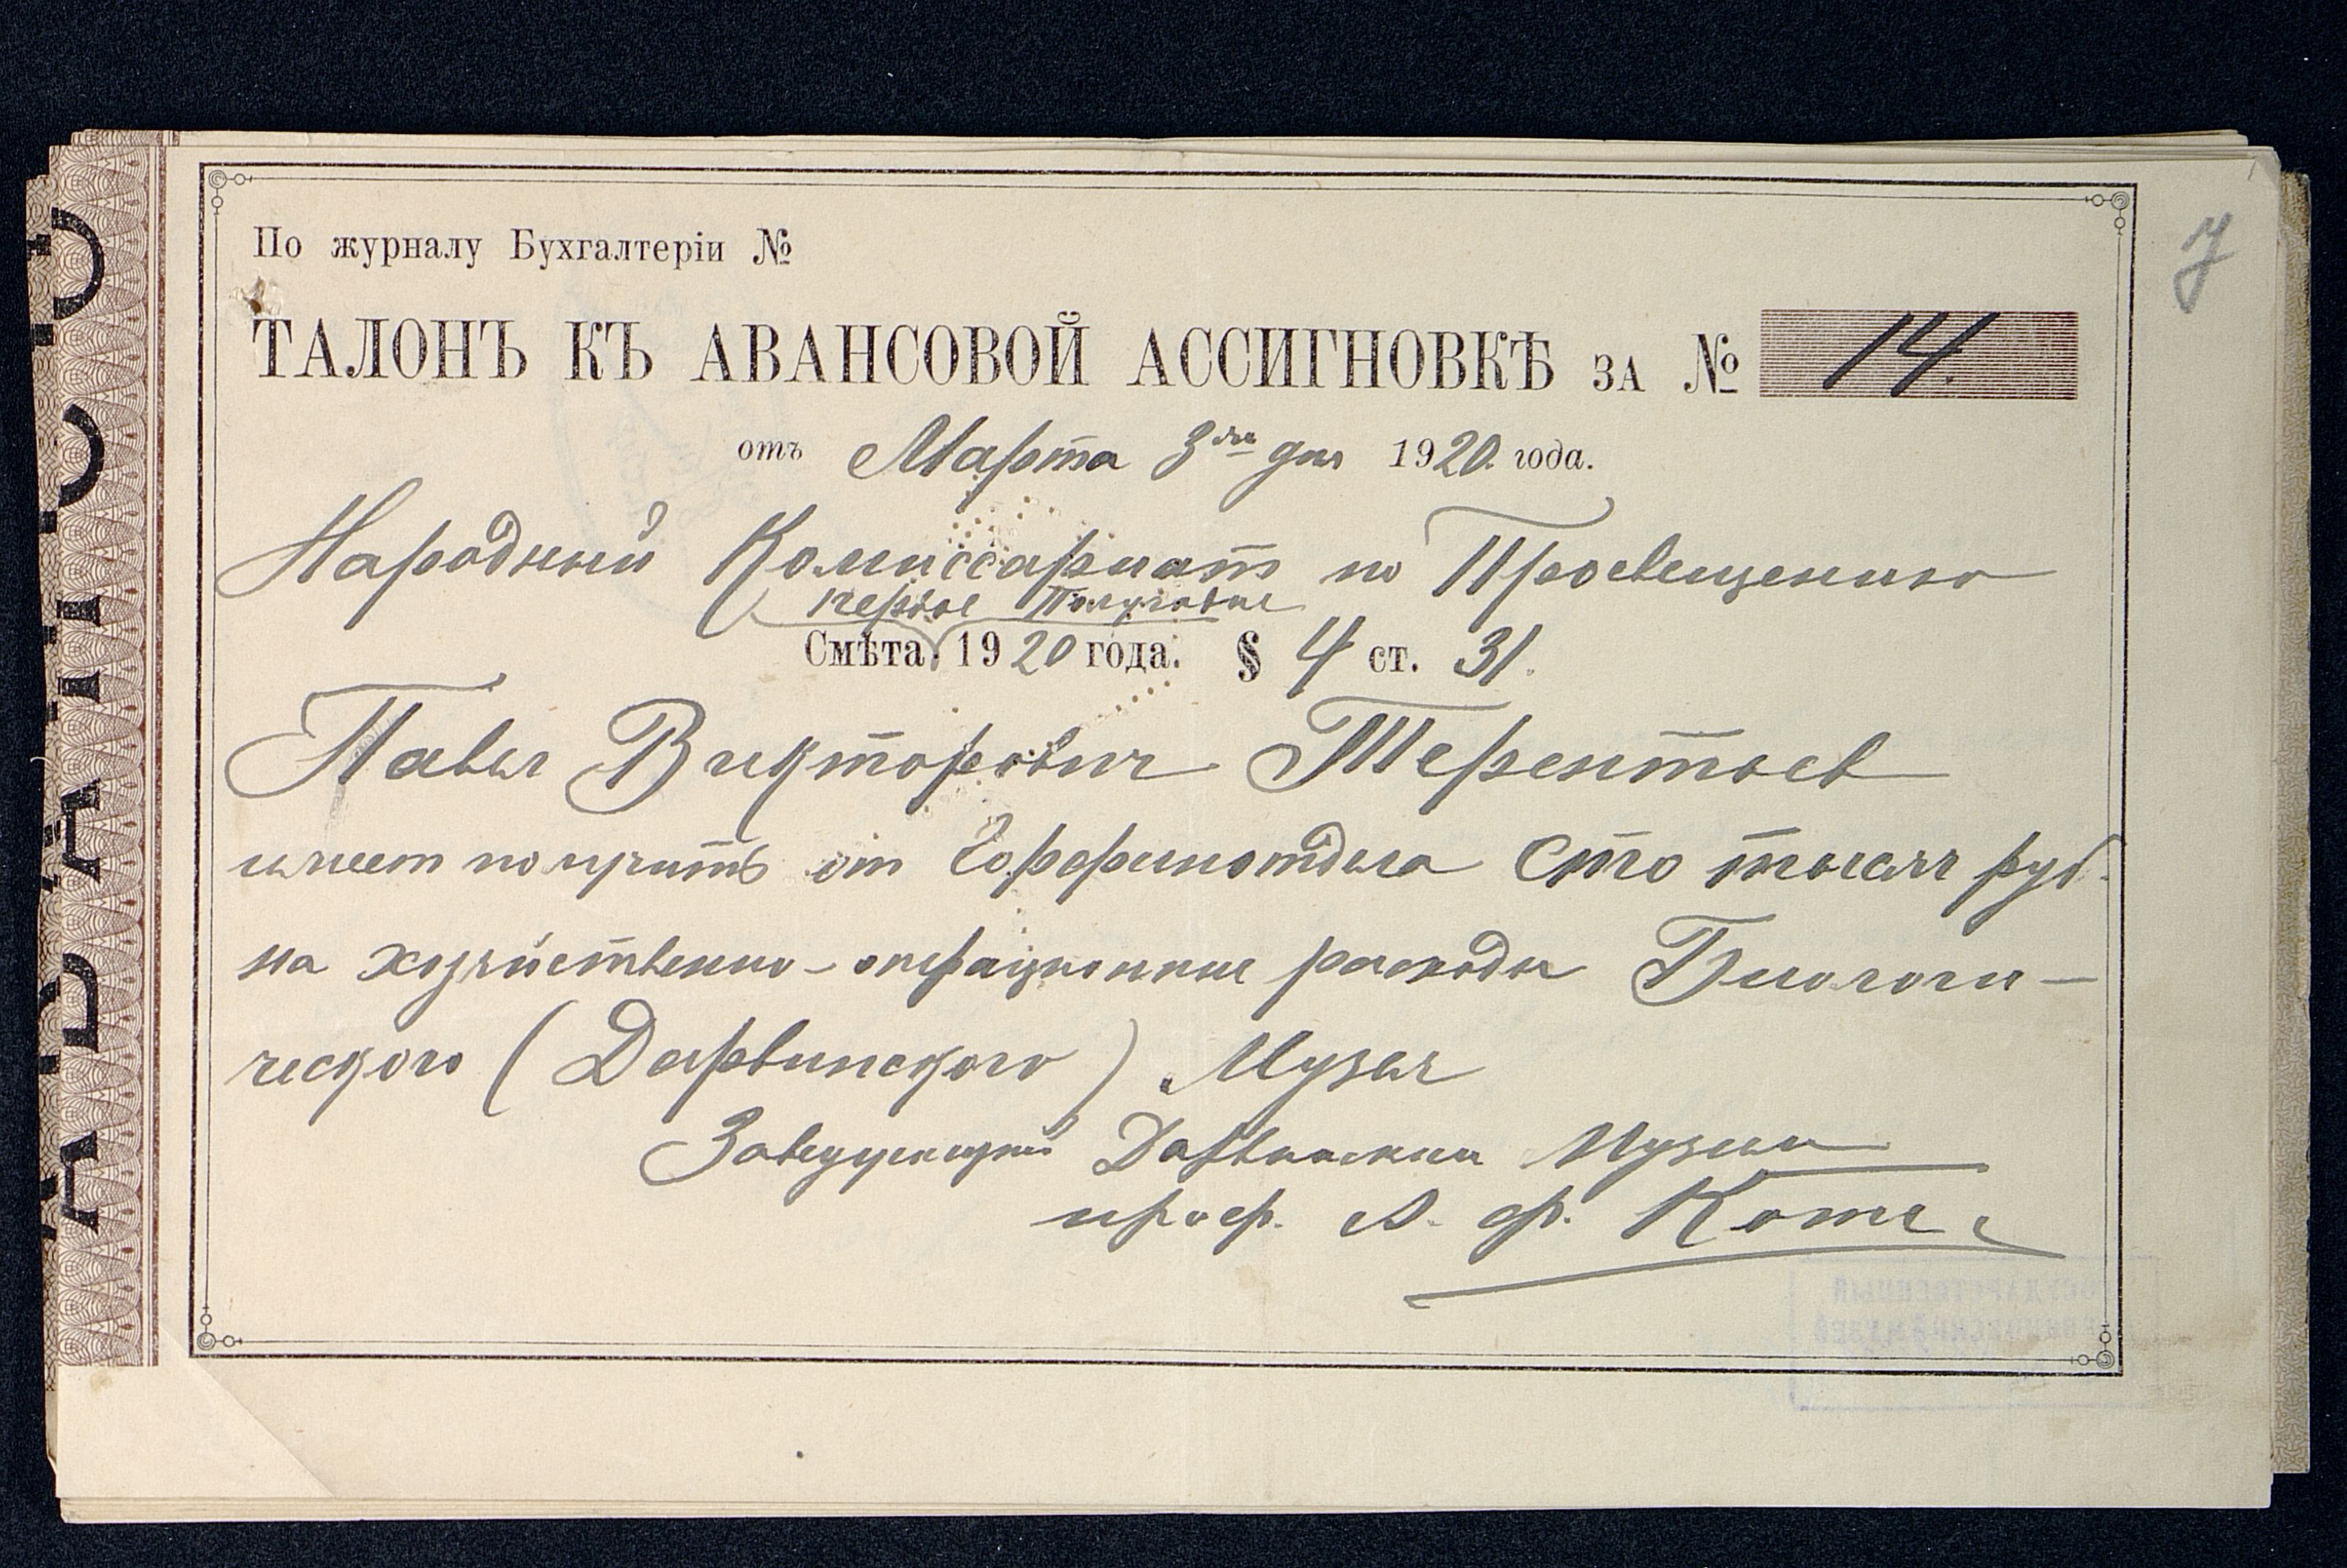 По журналу Бухгалтеріи №
ТАЛОНЪ КЪ АВАНСОВОЙ АССИГНОВКѢ ЗА № 14.
отъ Марта 3го дня 1920 года.
Народный Комиссариат по Просвещению
первое Полугодие
Смѣта 1920 года. § 4 ст. 31.
Павел Викторович Терентьев
имеет получить от Горфинотдела Сто тысяч руб.
на хозяйственно-операционные расходы Биологи-
ческого (Дарвинского) Музея
Заведующий Дарвинским Музеем
проф. А. Ф. Котс
7
ГОСУДАРСТВЕННЫЙ
ДАРВИНОВСКИЙ МУЗЕЙ